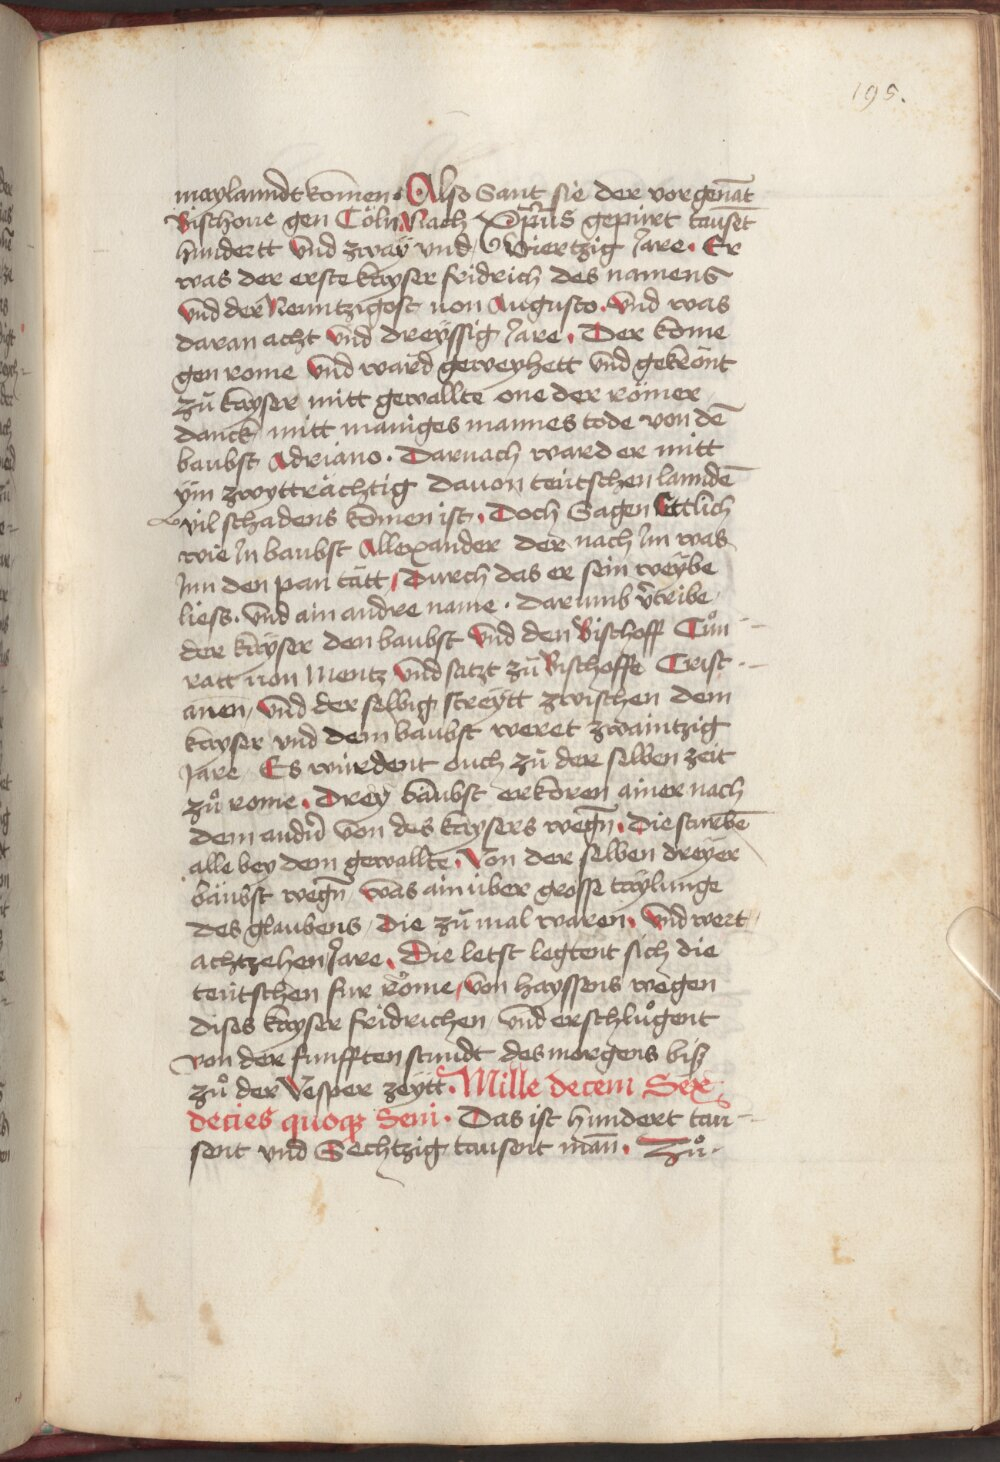 195.
maylanndt komen. Also Sant sie der vorgenāt
Bischoue gen Cöln. Nach xp̄us gepürt tauset
hundertt vnd zway vnd Viertzig Jare. Er
was der erste kayser fridrich des namens
vnd der Neuntzigost von Augusto. vnd was
daran acht vnd dreyssig Jare. Der kome
gen rome vnd ward geweyhett vnd gekrönt
zů kayser mitt gewallte one der römer
danck mitt maniges mannes tode von dē
baubst Adriano. Darnach ward er mitt
ym zwyträchtig dauon teutschen lanndē
vil schadens komen ist. Doch Sagen Ettlich
wie In baubst Allexander der nach Im was
Inn den pan tätt, Durch das er sein weybe
liess. vnd ain andre name. darumb v̄tribe
der kayser den baubst vnd den Bischoff Cůn
ratt von Mentz vnd satzt zů Bischoffe Crist
anen, vnd der selbig streytt zwischen dem
kayser vnd dem baubst weret zwaintzig
Jare. Es wurdent ouch zů der selben zeit
zů rome. Drey bäubst erkoren ainer nach
dem andn̄ von des kaysers wegn̄. Die sturbē
alle bey dem gewallte. Von der selben dreyer
bäubst wegn̄ was ain über grosse taylunge
des glaubens, die zů mal waren. vnd wert
achtzehen Jare. Die letst legtent sich die
teutschen fur rome, von hayssens wegen
dises kayser fridrichen vnd erschlůgent
von der funfften stundt des morgens bisz
zů der Vesper zeytt. Mille decem Sex
decies quoqz Seni. Das ist hundert tau
sent vnd Sechtzig tausent mān. Zů